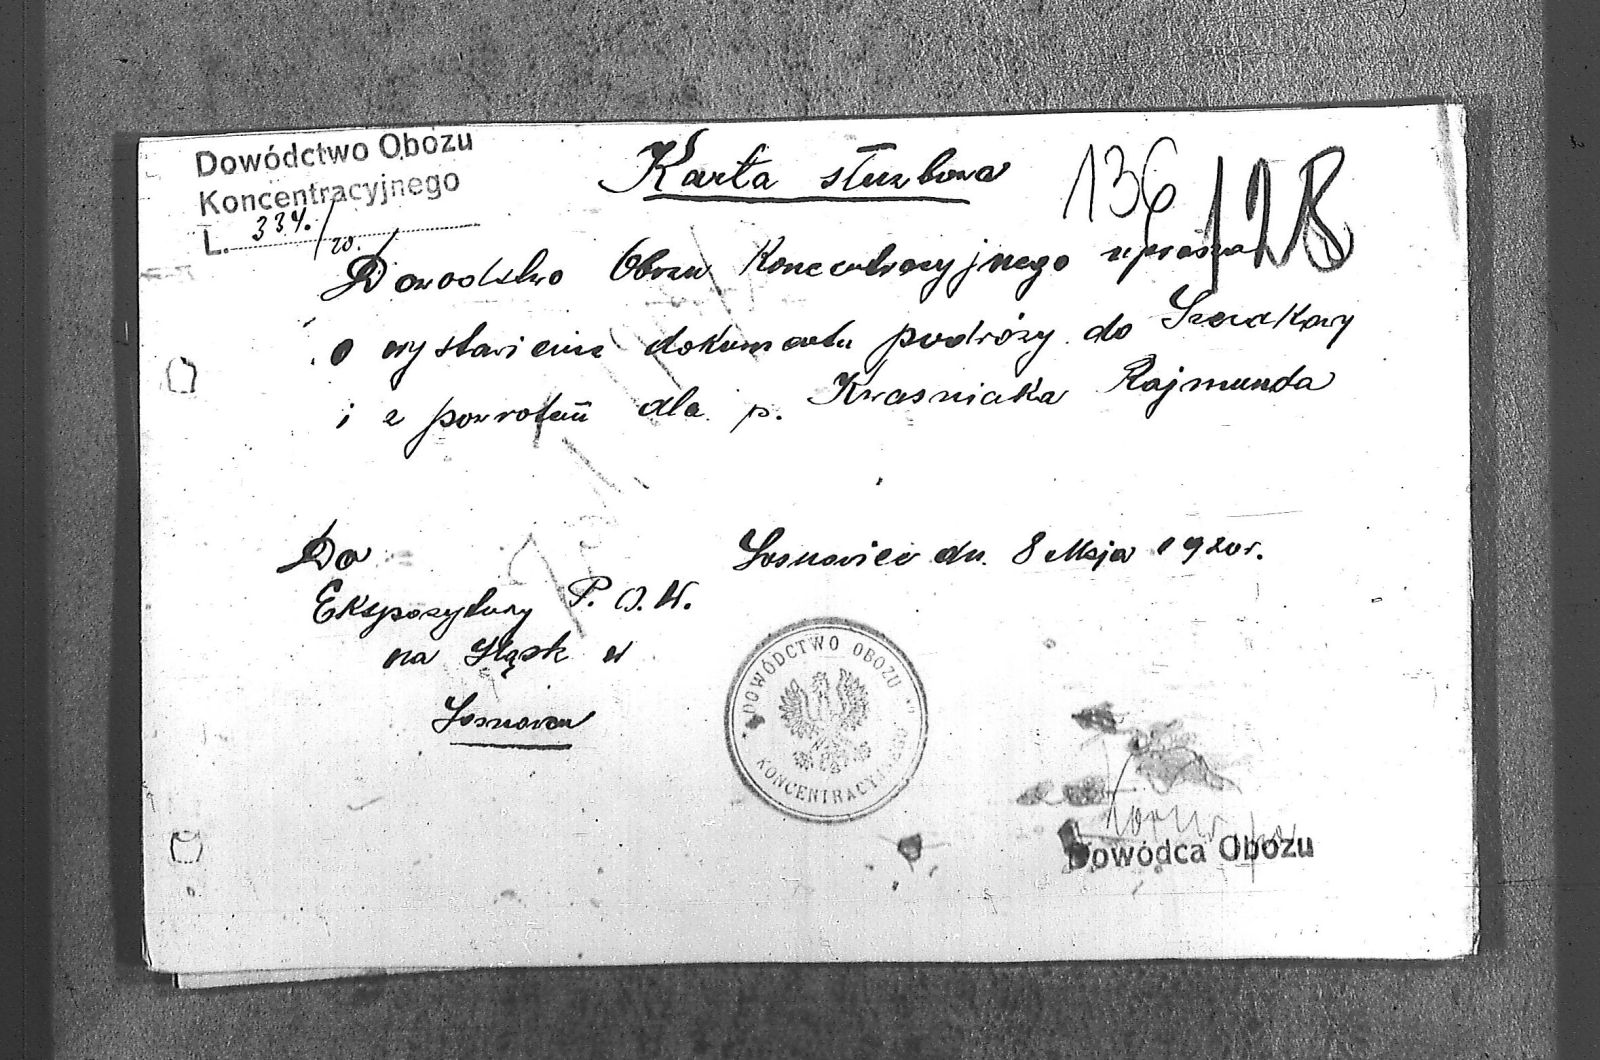 Dowództwo Obozu
Koncentracyjnego
L. 334./20.
Karta służbowa
136 128
Dowodztwo Obozu Koncentracyjnego uprasza
o wystawienie dokumentu podróży do Szczakowy
i z powrotem dla p. Kwasniaka Rajmunda
Do
Ekspozytury P.O.W.
na Śląsk w
Sosnowcu
Sosnowiec dn. 8 Maja 1920r.
DOWÓDZTWO OBOZU
KONCENTRACYJNEGO
Dowódca Obozu